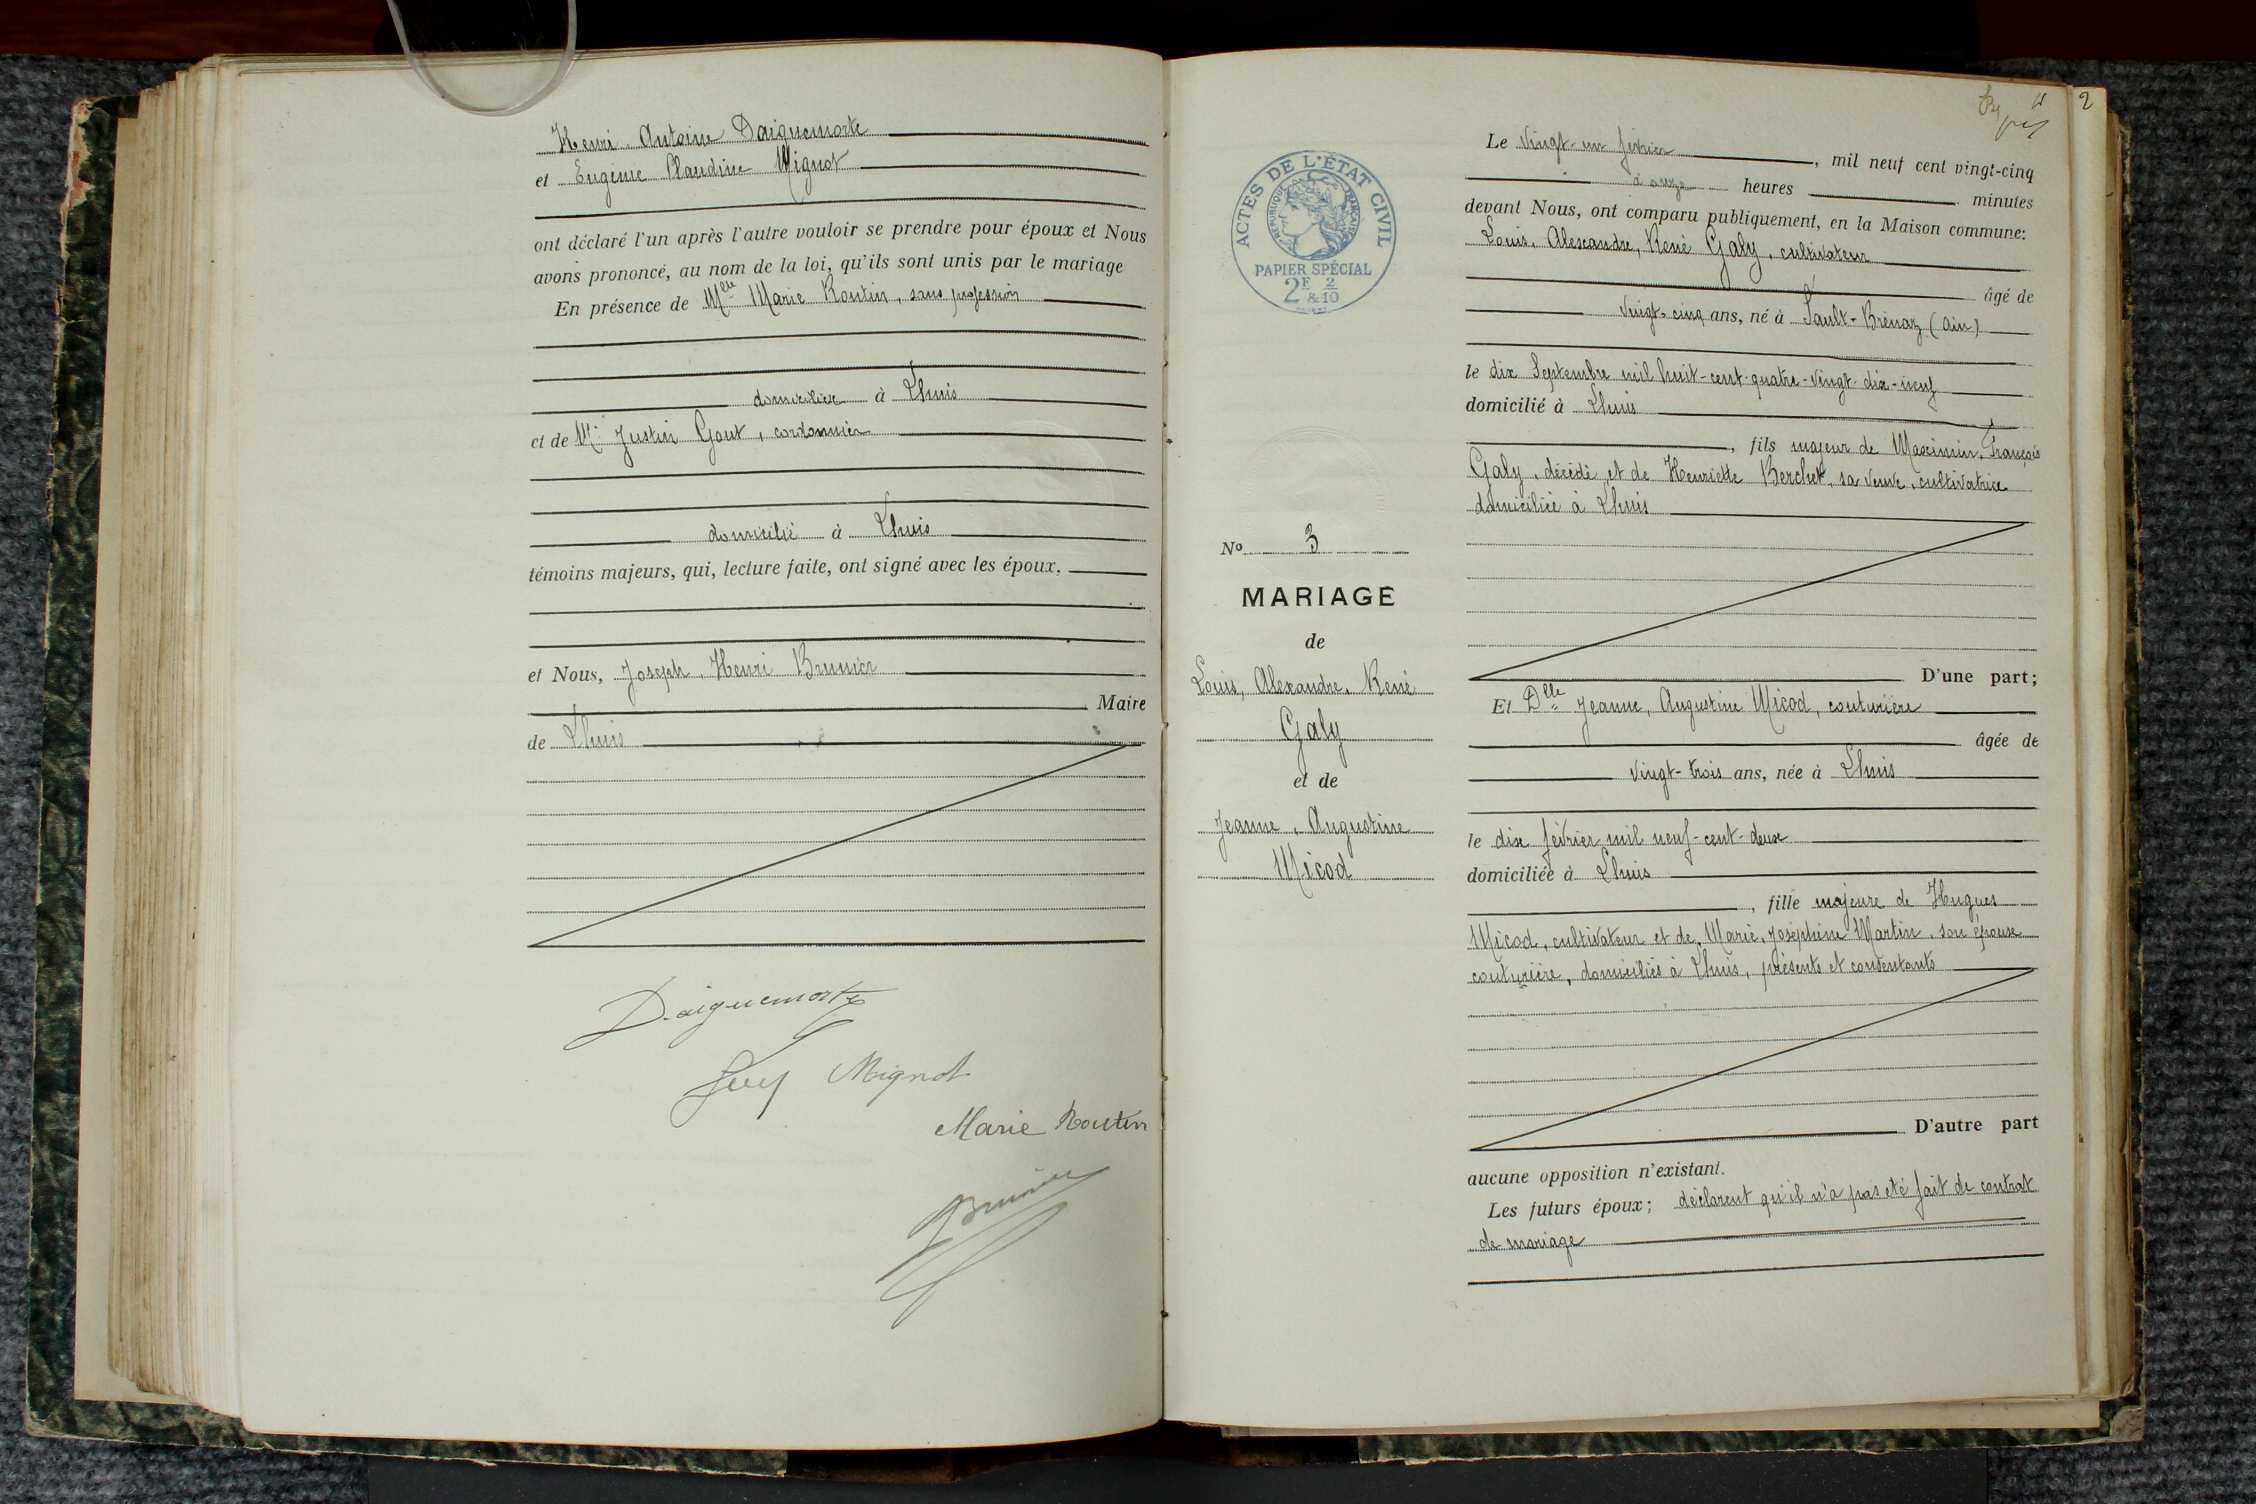 Henri Antoine Daiguemorte
et Eugénie Claudine Mignot
ont déclaré l'un après l'autre vouloir se prendre pour époux et Nous
avons prononcé, au nom de la loi, qu'ils sont unis par le mariage
En présence de Melle Marie Routin, sans profession
domiciliée à Lhuis
et de Mr Justin Gout, cordonnier
domicilié à Lhuis
témoins majeurs, qui, lecture faite, ont signé avec les époux,
et Nous, Joseph, Henri Brunier
Maire
de Lhuis
Daiguemorte
Mignot
Marie Routin
Brunier
2
ACTES DE L'ÉTAT CIVIL
RÉPUBLIQUE FRANÇAISE
PAPIER SPÉCIAL
2F 2
& 10
No 3
MARIAGE
de
Louis, Alexandre, René
Galy
et de
Jeanne, Augustine
Micod
Le vingt-un février, mil neuf cent vingt-cinq
à onze heures minutes
devant Nous, ont comparu publiquement, en la Maison commune:
Louis, Alexandre, René Galy, cultivateur
âgé de
vingt-cinq ans, né à Sault-Brénaz (Ain)
le dix Septembre mil huit-cent-quatre-vingt-dix-neuf
domicilié à Lhuis
, fils majeur de Maximin, François
Galy, décédé, et de Henriette Berchet, sa veuve, cultivatrice
domiciliée à Lhuis
D'une part;
Et Delle Jeanne, Augustine Micod, couturière
âgée de
vingt-trois ans, née à Lhuis
le dix février mil neuf-cent-deux
domiciliée à Lhuis
, fille majeure de Hugues
Micod, cultivateur et de Marie, Joséphine Martin, son épouse
couturière, domiciliés à Lhuis, présents et consentants
D'autre part
aucune opposition n'existant.
Les futurs époux; déclarent qu'il n'a pas été fait de contrat
de mariage